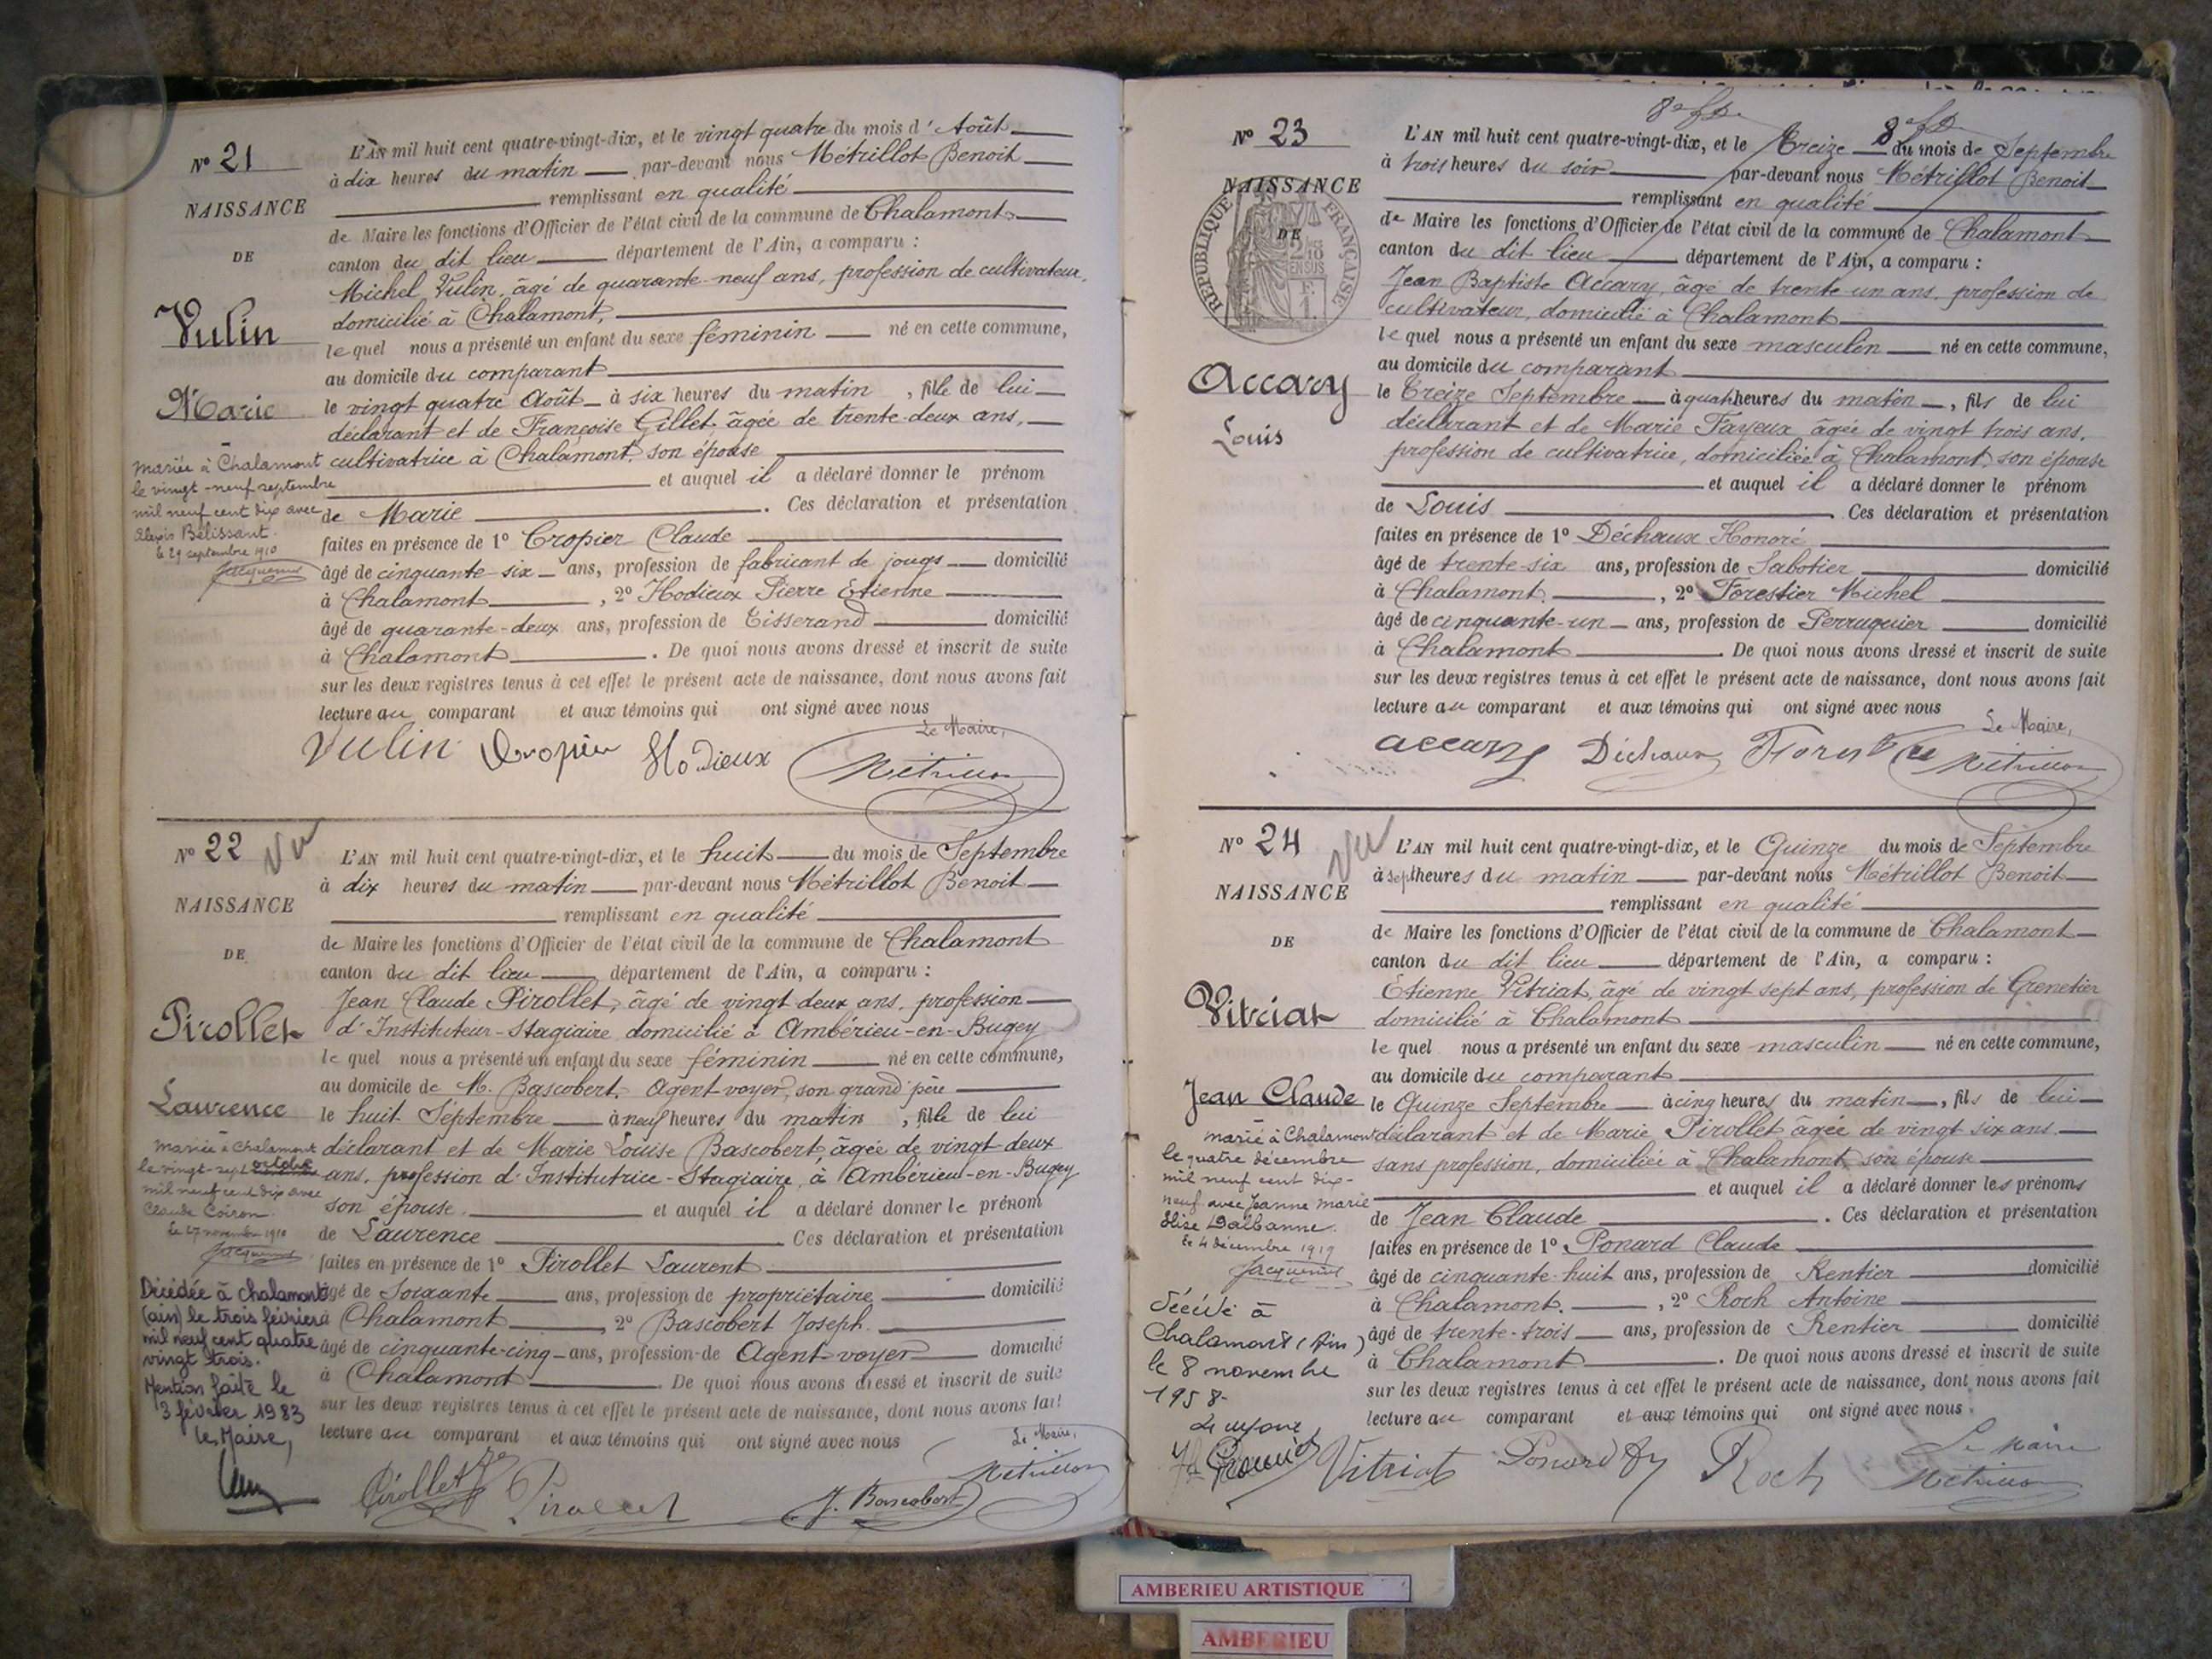 Nº 21
NAISSANCE
DE
Vulin
Marie
mariée à Chalamont
le vingt-neuf septembre
mil neuf cent dix avec
Alexis Bélissant.
le 29 septembre 1910
Jacquemet
L'AN mil huit cent quatre-vingt-dix, et le vingt quatre du mois d'Août
à dix heures du matin par-devant nous Métrillot Benoit
remplissant en qualité
de Maire les fonctions d'Officier de l'état civil de la commune de Chalamont
canton du dit lieu département de l'Ain, a comparu :
Michel Vulin, âgé de quarante-neuf ans, profession de cultivateur,
domicilié à Chalamont,
lequel nous a présenté un enfant du sexe féminin né en cette commune,
au domicile du comparant
le vingt quatre Août à six heures du matin, fille de lui
déclarant et de Françoise Gillet, âgée de trente-deux ans,
cultivatrice à Chalamont, son épouse
et auquel il a déclaré donner le prénom
de Marie. Ces déclaration et présentation
faites en présence de 1º Cropier Claude
âgé de cinquante-six ans, profession de fabricant de jougs domicilié
à Chalamont, 2º Hodieux Pierre Etienne
âgé de quarante-deux ans, profession de Tisserand domicilié
à Chalamont. De quoi nous avons dressé et inscrit de suite
sur les deux registres tenus à cet effet le présent acte de naissance, dont nous avons fait
lecture au comparant et aux témoins qui ont signé avec nous
Le Maire,
Vulin Cropier Hodieux Métrillot
Nº 22 Vu
NAISSANCE
DE
Pirollet
Laurence
Mariée à Chalamont
le vingt-sept octobre
mil neuf cent dix avec
Claude Coiron.
Le 27 novembre 1910
Jacquemet
Décédée à Chalamont
(ain) le trois février
mil neuf cent quatre
vingt trois.
Mention faite le
3 février 1983
le Maire,
L'AN mil huit cent quatre-vingt-dix, et le huit du mois de Septembre
à dix heures du matin par-devant nous Métrillot Benoit
remplissant en qualité
de Maire les fonctions d'Officier de l'état civil de la commune de Chalamont
canton du dit lieu département de l'Ain, a comparu :
Jean Claude Pirollet, âgé de vingt deux ans, profession
d'Instituteur-Stagiaire domicilié à Ambérieu-en-Bugey
lequel nous a présenté un enfant du sexe féminin né en cette commune,
au domicile de M. Bascobert, Agent voyer, son grand père
le huit Septembre à neuf heures du matin, fille de lui
déclarant et de Marie Louise Bascobert, âgée de vingt deux
ans, profession d'Institutrice-Stagiaire, à Ambérieu-en-Bugey
son épouse. et auquel il a déclaré donner le prénom
de Laurence Ces déclaration et présentation
faites en présence de 1º Pirollet Laurent
âgé de Soixante ans, profession de propriétaire domicilié
à Chalamont, 2º Bascobert Joseph.
âgé de cinquante-cinq ans, profession de Agent-voyer domicilié
à Chalamont. De quoi nous avons dressé et inscrit de suite
sur les deux registres tenus à cet effet le présent acte de naissance, dont nous avons fait
lecture au comparant et aux témoins qui ont signé avec nous
Le Maire,
Pirollet Pirollet J. Bascobert Métrillot
Nº 23
NAISSANCE
DE
RÉPUBLIQUE FRANÇAISE
2/10 EN SUS
Accary
Louis
L'AN mil huit cent quatre-vingt-dix, et le Treize du mois de Septembre
à trois heures du soir par-devant nous Métrillot Benoit
remplissant en qualité
de Maire les fonctions d'Officier de l'état civil de la commune de Chalamont
canton du dit lieu département de l'Ain, a comparu :
Jean Baptiste Accary, âgé de trente-un ans, profession de
cultivateur, domicilié à Chalamont
lequel nous a présenté un enfant du sexe masculin né en cette commune,
au domicile du comparant
le Treize Septembre à quat heures du matin, fils de lui
déclarant et de Marie Fayeux âgée de vingt trois ans,
profession de cultivatrice, domiciliée à Chalamont, son épouse
et auquel il a déclaré donner le prénom
de Louis. Ces déclaration et présentation
faites en présence de 1º Déchaux Honoré
âgé de trente-six ans, profession de Sabotier domicilié
à Chalamont., 2º Forestier Michel
âgé de cinquante-un ans, profession de Perruquier domicilié
à Chalamont. De quoi nous avons dressé et inscrit de suite
sur les deux registres tenus à cet effet le présent acte de naissance, dont nous avons fait
lecture au comparant et aux témoins qui ont signé avec nous
Le Maire,
accary Déchaux Forestier Métrillot
Nº 24 Vu
NAISSANCE
DE
Vitriat
Jean Claude
marié à Chalamont
le quatre décembre
mil neuf cent dix-
neuf avec Jeanne Marie
Elise Dalbanne.
Le 4 décembre 1919
Jacquemet
Décédé à
Chalamont (Ain)
le 8 novembre
1958-
L'AN mil huit cent quatre-vingt-dix, et le Quinze du mois de Septembre
à sept heures du matin par-devant nous Métrillot Benoit
remplissant en qualité
de Maire les fonctions d'Officier de l'état civil de la commune de Chalamont
canton du dit lieu département de l'Ain, a comparu :
Etienne Vitriat, âgé de vingt sept ans, profession de Grenetier
domicilié à Chalamont
lequel nous a présenté un enfant du sexe masculin né en cette commune,
au domicile du comparant
le Quinze Septembre à cinq heures du matin, fils de lui
déclarant et de Marie Pirollet âgée de vingt six ans.
sans profession, domiciliée à Chalamont, son épouse
et auquel il a déclaré donner les prénoms
de Jean Claude. Ces déclaration et présentation
faites en présence de 1º Ponard Claude
âgé de cinquante-huit ans, profession de Rentier domicilié
à Chalamont., 2º Roch Antoine
âgé de trente-trois ans, profession de Rentier domicilié
à Chalamont. De quoi nous avons dressé et inscrit de suite
sur les deux registres tenus à cet effet le présent acte de naissance, dont nous avons fait
lecture au comparant et aux témoins qui ont signé avec nous.
Le Maire
Vitriat Ponard Roch Métrillot
AMBERIEU ARTISTIQUE
AMBERIEU